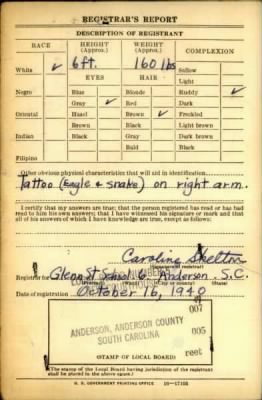 REGISTRAR'S REPORT
DESCRIPTION OF REGISTRANT
RACE HEIGHT (Approx.) WEIGHT (Approx.) COMPLEXION
White ✓ 6ft. 160 lbs Sallow
EYES HAIR Light
Negro Blue Blonde Ruddy ✓
Gray ✓ Red Dark
Oriental Hazel Brown ✓ Freckled
Brown Black Light brown
Indian Black Gray Dark brown
Bald Black
Filipino
Other obvious physical characteristics that will aid in identification
Tattoo (Eagle & snake) on right arm.
I certify that my answers are true; that the person registered has read or has had
read to him his own answers; that I have witnessed his signature or mark and that
all of his answers of which I have knowledge are true, except as follows:
Caroline Skelton
(Signature of registrar)
Registrar for Glenn St School 6 Anderson S.C.
Date of registration October 16, 1940
007
ANDERSON, ANDERSON COUNTY
SOUTH CAROLINA
005
reet
(STAMP OF LOCAL BOARD)
(The stamp of the Local Board having jurisdiction of the registrant
shall be placed in the above space.)
U. S. GOVERNMENT PRINTING OFFICE 16—17105